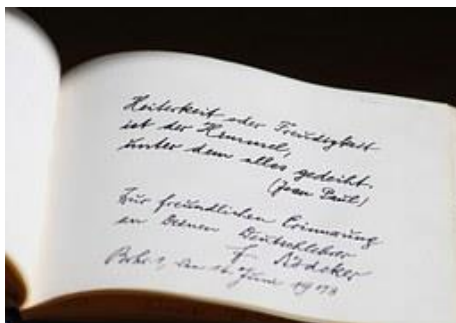 Heiterkeit oder Freudigkeit
ist der Himmel,
unter dem alles gedeiht.
(Jean Paul)
Zur freundlichen Erinnerung
an Deinen Deutschlehrer
F.
den Juni 1978